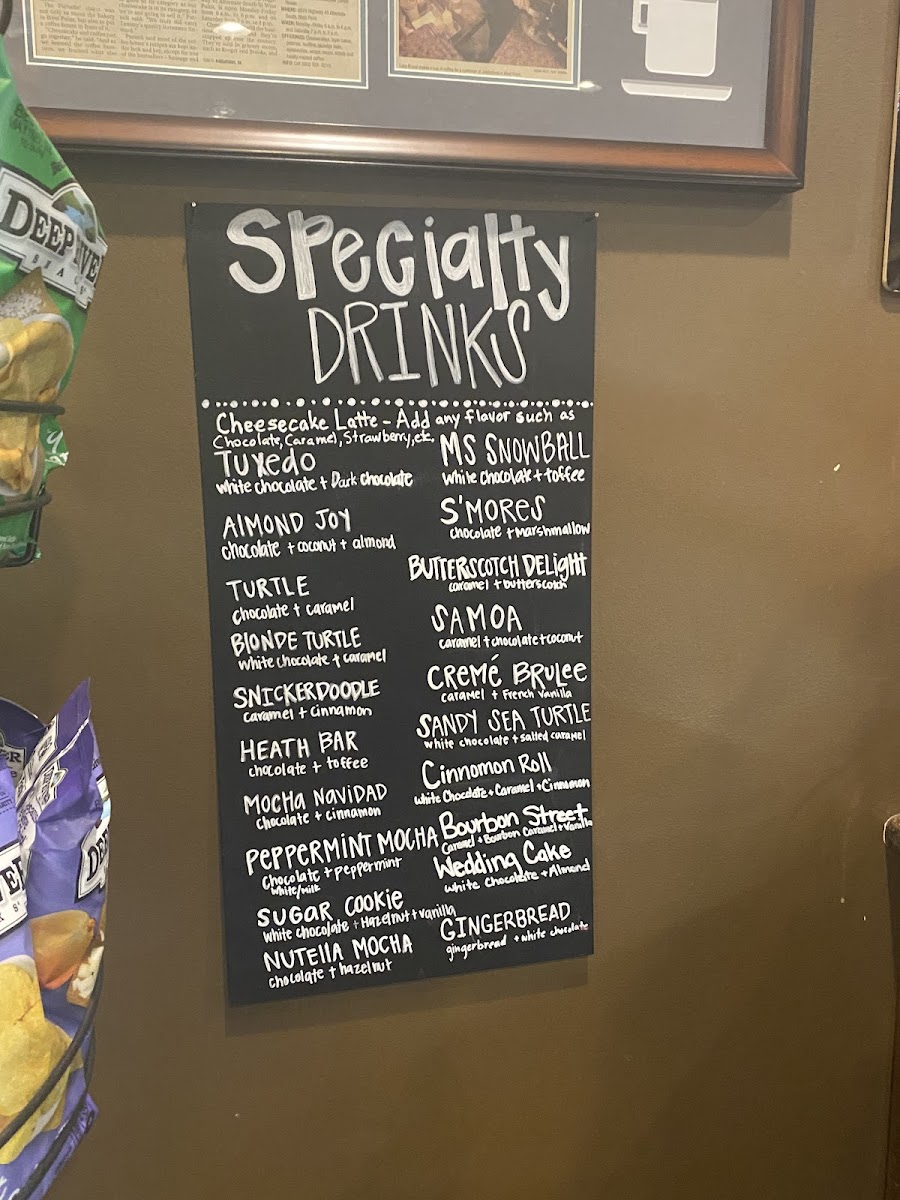 DEEP
Specialty
DRINKS
Cheesecake Latte - Add any flavor such as
Chocolate, Caramel, Strawberry, etc.
Tuxedo
white chocolate + Dark chocolate
AlMOND JOY
chocolate + coconut + almond
TURTLE
chocolate + caramel
BlONDE TURTLE
white chocolate + caramel
SNICKERDOODLE
caramel + cinnamon
HEATH BAR
chocolate + toffee
MOCHA NAVIDAD
chocolate + cinnamon
PEPPERMINT MOCHA
chocolate + peppermint
white/milk
SUGAR COOKIE
white chocolate + Hazelnut + vanilla
NUTELLA MOCHA
chocolate + hazelnut
MS SNOWBALL
white chocolate + toffee
S'MORES
chocolate + marshmallow
BUTTERSCOTCH DELIGHT
caramel + butterscotch
SAMOA
caramel + chocolate + coconut
CREMÉ BRULEE
caramel + French vanilla
SANDY SEA TURTLE
white chocolate + salted caramel
Cinnomon Roll
white Chocolate + Caramel + Cinnamon
Bourbon Street
Caramel + Bourbon Caramel + Vanilla
Wedding Cake
white chocolate + Almond
GINGERBREAD
gingerbread + white chocolate